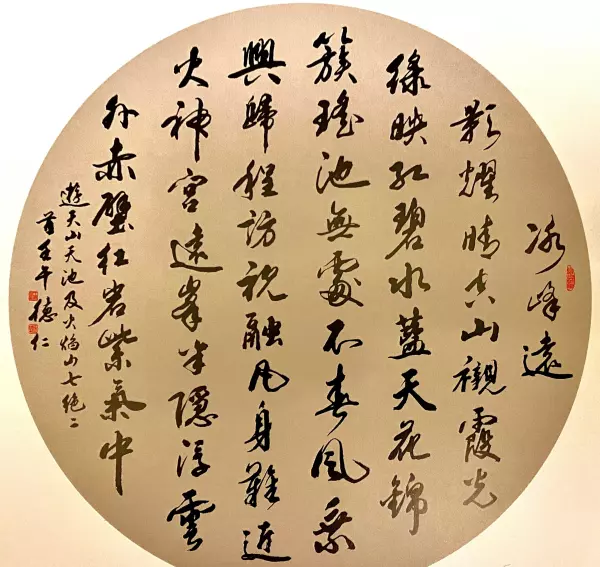 冰峰遠
影耀晴空山襯霞光
綠映紅碧水藍天花錦
簇瑤池無處不春風乘
興歸程訪祝融凡身難近
火神宮遠峯半隱浮雲
外赤壁紅岩紫氣中
遊天山天池及火焰山七絕二
首壬午德仁